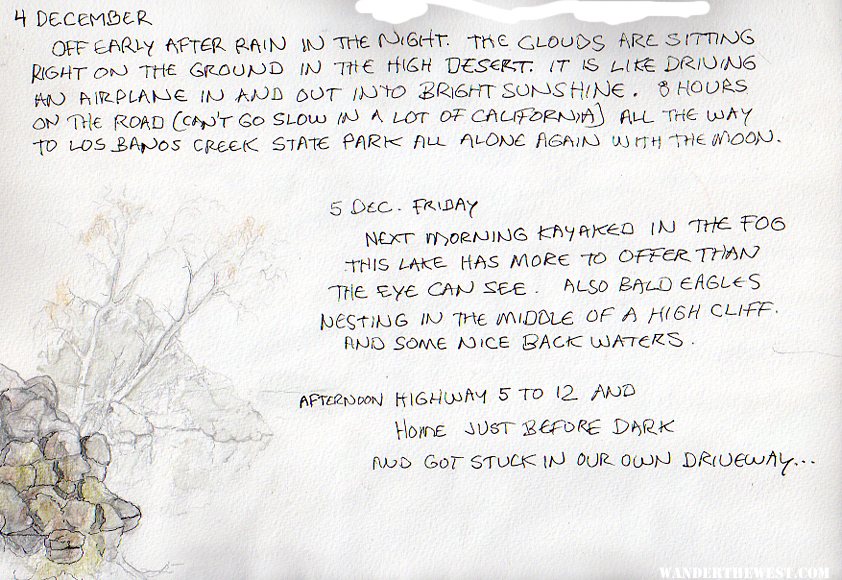 4 DECEMBER
OFF EARLY AFTER RAIN IN THE NIGHT. THE CLOUDS ARE SITTING
RIGHT ON THE GROUND IN THE HIGH DESERT. IT IS LIKE DRIVING
AN AIRPLANE IN AND OUT INTO BRIGHT SUNSHINE. 8 HOURS
ON THE ROAD (CAN'T GO SLOW IN A LOT OF CALIFORNIA) ALL THE WAY
TO LOS BANOS CREEK STATE PARK ALL ALONE AGAIN WITH THE MOON.
5 DEC. FRIDAY
NEXT MORNING KAYAKED IN THE FOG
THIS LAKE HAS MORE TO OFFER THAN
THE EYE CAN SEE. ALSO BALD EAGLES
NESTING IN THE MIDDLE OF A HIGH CLIFF.
AND SOME NICE BACK WATERS.
AFTERNOON HIGHWAY 5 TO 12 AND
HOME JUST BEFORE DARK
AND GOT STUCK IN OUR OWN DRIVEWAY...
WANDERTHEWEST.COM